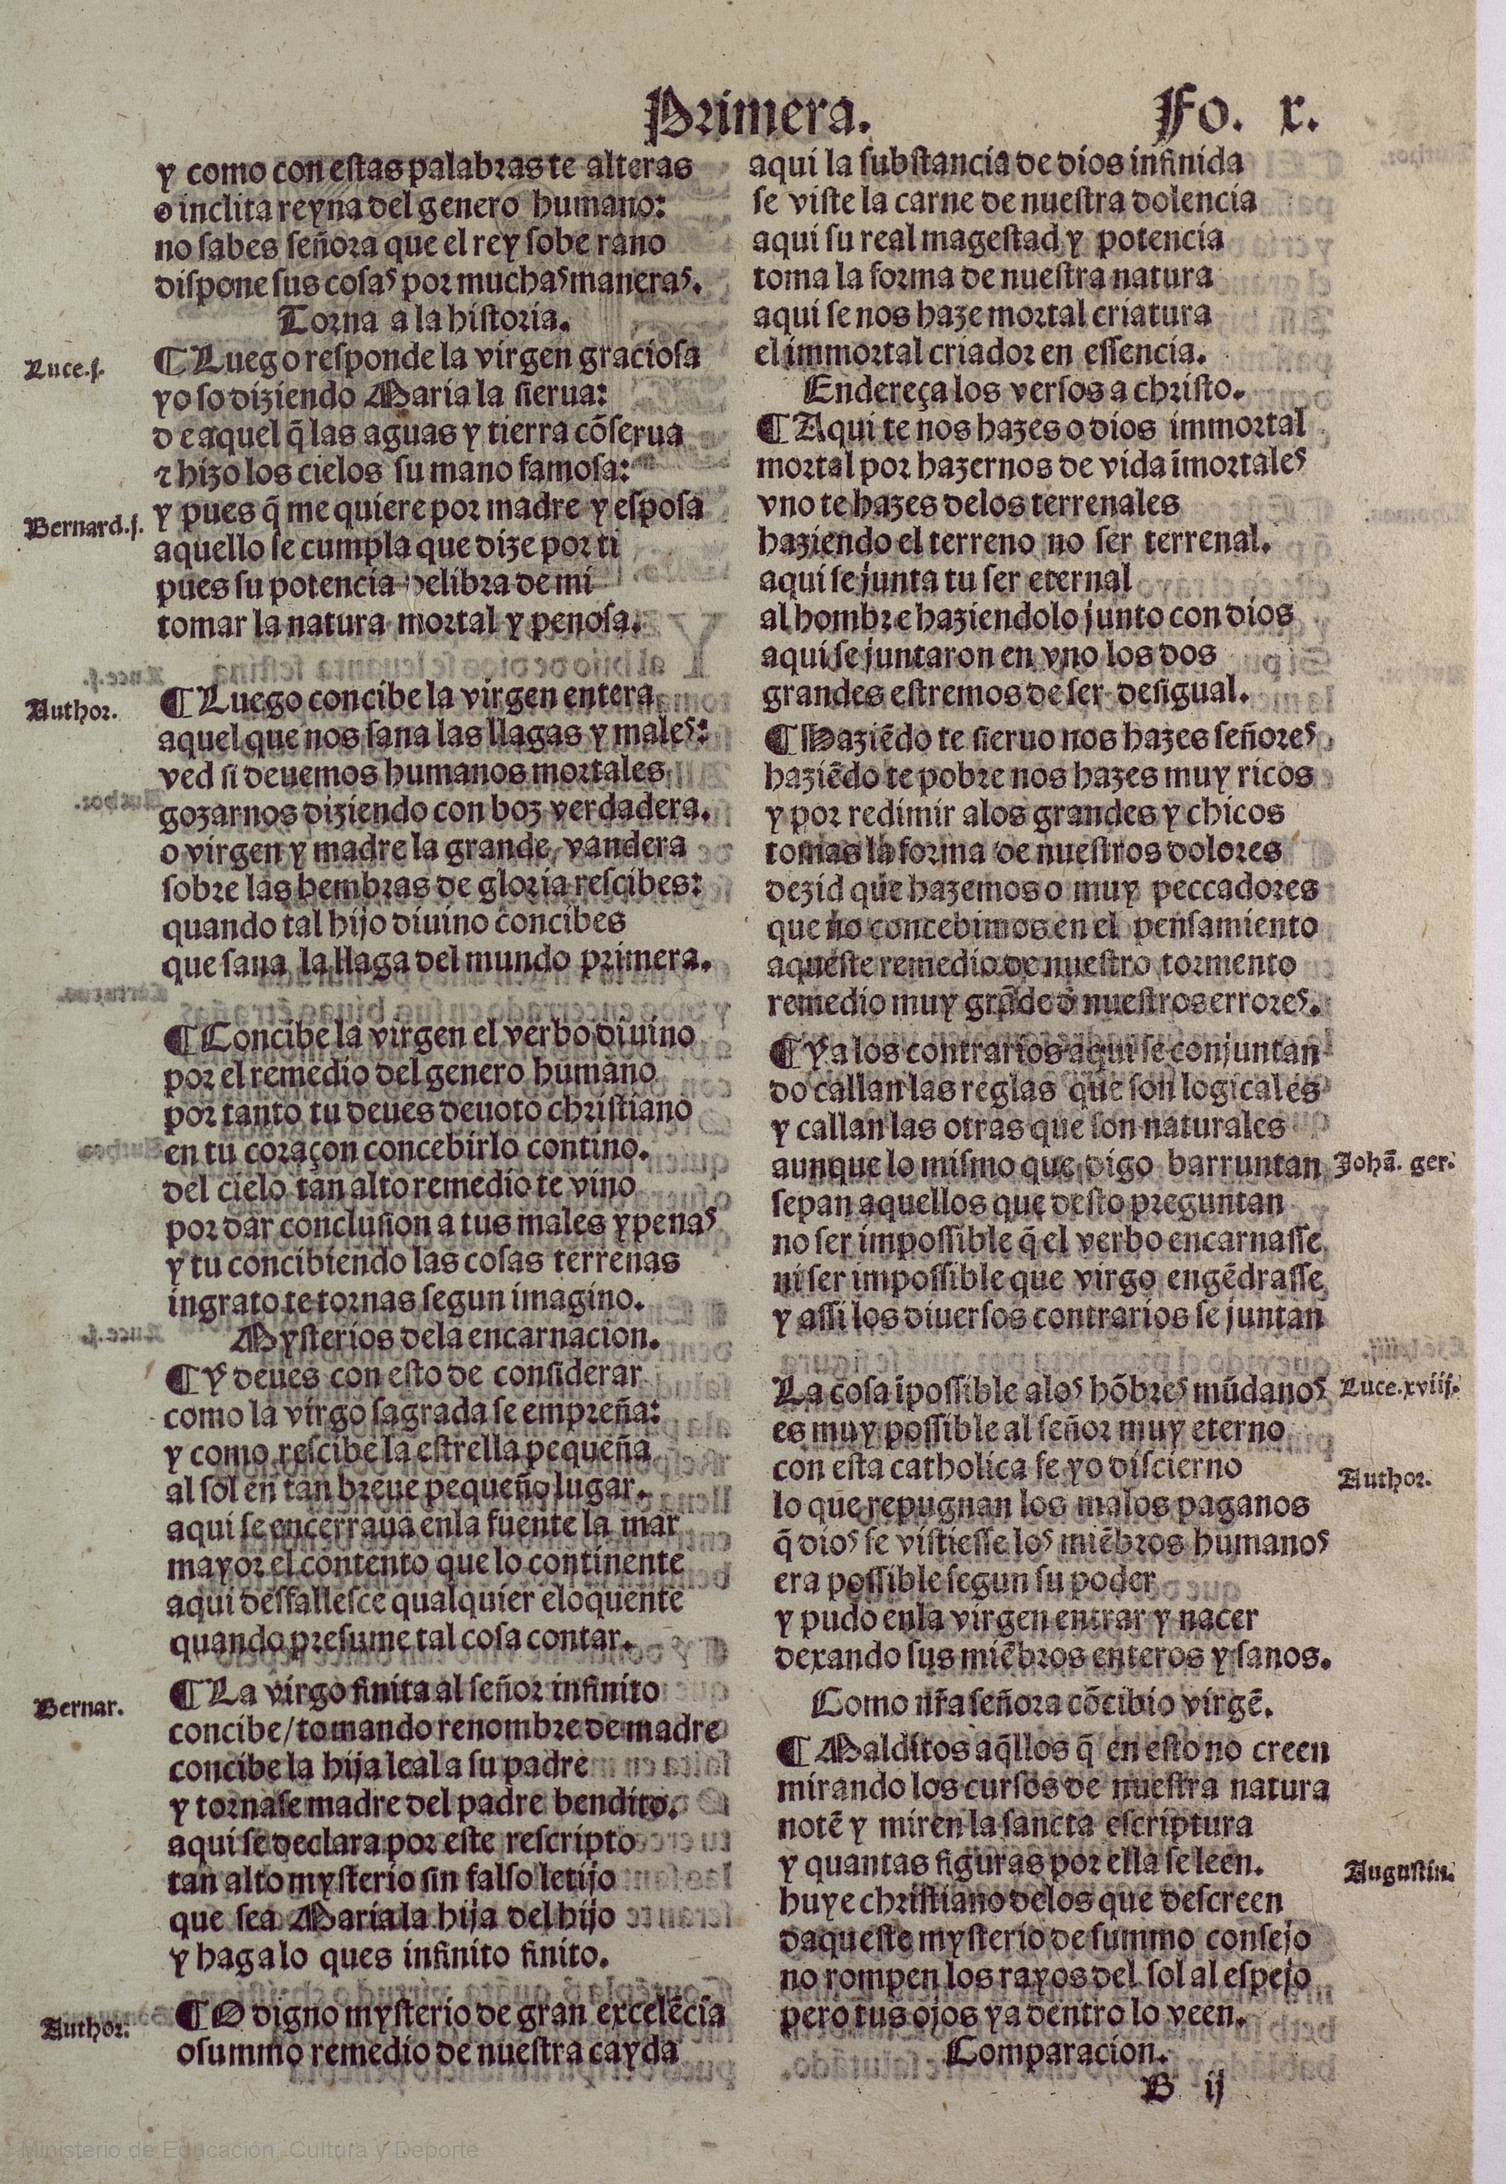 Primera. Fo. x.
y como con estas palabras te alteras
o inclita reyna del genero humano:
no sabes señora que el rey sobe rano
dispone sus cosas por muchas maneras.
Torna a la historia.
Luce.j.
¶ Luego responde la virgen graciosa
yo so diziendo Maria la sierua:
d e aquel q̃ las aguas y tierra cõserua
⁊ hizo los cielos su mano famosa:
Bernard.j.
y pues q̃ me quiere por madre y esposa
aquello se cumpla que dize por ti
pues su potencia delibra de mi
tomar la natura mortal y penosa.
Author.
¶ Luego concibe la virgen entera
aquel que nos sana las llagas y males:
ved si deuemos humanos mortales
gozarnos diziendo con boz verdadera.
o virgen y madre la grande vandera
sobre las hembras de gloria rescibes:
quando tal hijo diuino concibes
que sana la llaga del mundo primera.
¶ Concibe la virgen el verbo diuino
por el remedio del genero humano
por tanto tu deues deuoto christiano
en tu coraçon concebirlo contino.
del cielo tan alto remedio te vino
por dar conclusion a tus males y penas
y tu concibiendo las cosas terrenas
ingrato te tornas segun imagino.
Mysterios dela encarnacion.
¶ Y deues con esto de considerar
como la virgo sagrada se empreña:
y como rescibe la estrella pequeña
al sol en tan breue pequeño lugar.
aqui se encerraua enla fuente la mar
mayor el contento que lo continente
aqui desfallesce qualquier eloquente
quando presume tal cosa contar.
Bernar.
¶ La virgo finita al señor infinito
concibe/tomando renombre de madre
concibe la hija leal a su padre
y tornase madre del padre bendito.
aqui se declara por este rescripto
tan alto mysterio sin falso letijo
que sea Maria la hija del hijo
y hagalo ques infinito finito.
Author.
¶ O digno mysterio de gran excelẽcia
o summo remedio de nuestra cayda
aqui la substancia de dios infinida
se viste la carne de nuestra dolencia
aqui su real magestad y potencia
toma la forma de nuestra natura
aqui se nos haze mortal criatura
el immortal criador en essencia.
Endereça los versos a christo.
¶ Aqui te nos hazes o dios immortal
mortal por hazernos de vida ĩmortales
vno te hazes delos terrenales
haziendo el terreno no ser terrenal.
aqui se junta tu ser eternal
al hombre haziendolo junto con dios
aqui se juntaron en vno los dos
grandes estremos de ser desigual.
¶ Haziẽdo te sieruo nos hazes señores
haziẽdo te pobre nos hazes muy ricos
y por redimir alos grandes y chicos
tomas la forma de nuestros dolores
dezid que hazemos o muy peccadores
que no concebimos en el pensamiento
aqueste remedio de nuestro tormento
remedio muy grãde d̃ nuestros errores.
¶ Ya los contrarios aqui se conjuntan
do callan las reglas que son logicales
y callan las otras que son naturales
aunque lo mismo que digo barruntan
Johã. ger.
sepan aquellos que desto preguntan
no ser impossible q̃ el verbo encarnasse
ni ser impossible que virgo engẽdrasse
y assi los diuersos contrarios se juntan
La cosa ĩpossible alos hõbres mũdanos
Luce.xviij.
es muy possible al señor muy eterno
con esta catholica fe yo discierno
Author.
lo que repugnan los malos paganos
q̃ dios se vistiesse los miẽbros humanos
era possible segun su poder
y pudo enla virgen entrar y nacer
dexando sus miẽbros enteros y sanos.
Como nr̃a señora cõcibio virgẽ.
¶ Malditos aq̃llos q̃ en esto no creen
mirando los cursos de nuestra natura
notẽ y miren la sancta escriptura
y quantas figuras por ella se leen.
Augustin.
huye christiano delos que descreen
daqueste mysterio de summo consejo
no rompen los rayos del sol al espejo
pero tus ojos ya dentro lo veen.
Comparacion.
B ij
Ministerio de Educación, Cultura y Deporte